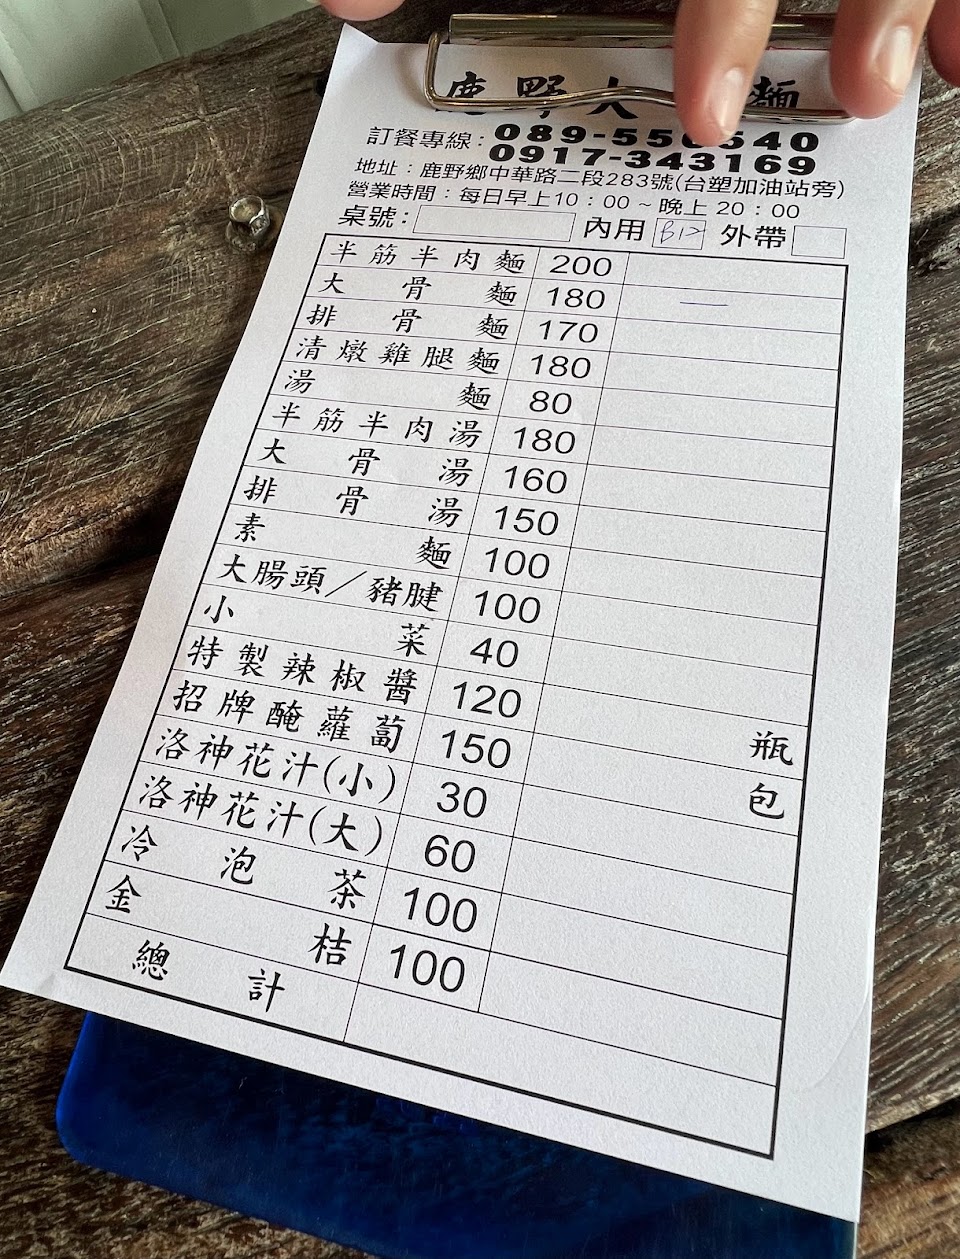 鹿野大 麵
訂餐專線：089-550540
0917-343169
地址：鹿野鄉中華路二段283號(台塑加油站旁)
營業時間：每日早上10：00～晚上20：00
桌號： 內用 B12 外帶
半筋半肉麵 200
大骨麵 180 一
排骨麵 170
清燉雞腿麵 180
湯麵 80
半筋半肉湯 180
大骨湯 160
排骨湯 150
素麵 100
大腸頭／豬腱 100
小菜 40
特製辣椒醬 120 瓶
招牌醃蘿蔔 150 包
洛神花汁(小) 30
洛神花汁(大) 60
冷泡茶 100
金桔 100
總計